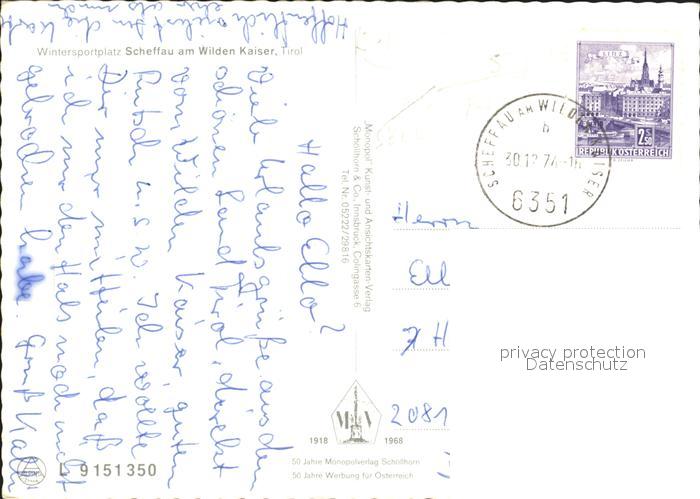 Hoffentlich
Wintersportplatz Scheffau am Wilden Kaiser, Tirol
Hallo Ello?
Viele Urlaubsgrüße aus dem
schönen Land Tirol, direkt
vom Wilden Kaiser, guten
Rutsch u.s.w. Ich wollte
Dir nur mitteilen, daß
ich mir den Hals noch nicht
gebrochen habe. Gruß Karl
"Monopol" Kunst- und Ansichtskarten-Verlag
Schöllhorn & Co., Innsbruck, Colingasse 6
Tel. Nr. 05222/29816
LINZ
2.50 S
REPUBLIK ÖSTERREICH
SCHEFFAU AM WILDEN KAISER
b
30.12.74-1
6351
Herrn
Ell
7 H
2081
privacy protection
Datenschutz
M V
1918 1968
50 Jahre Monopolverlag Schöllhorn
50 Jahre Werbung für Österreich
L 9151350